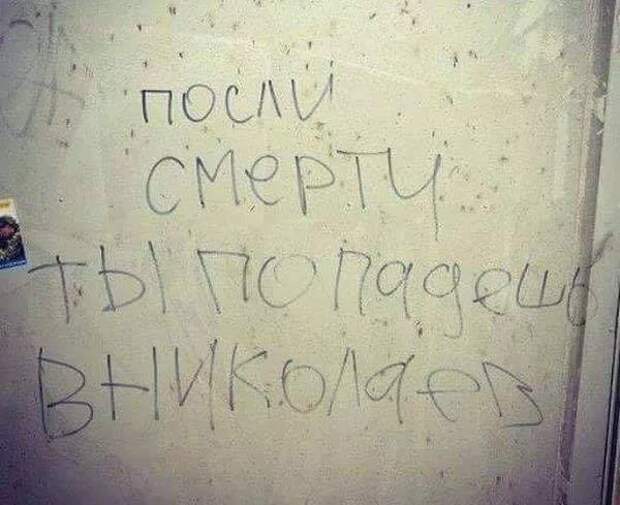 посли
смерти
ты попадешь
в николаев